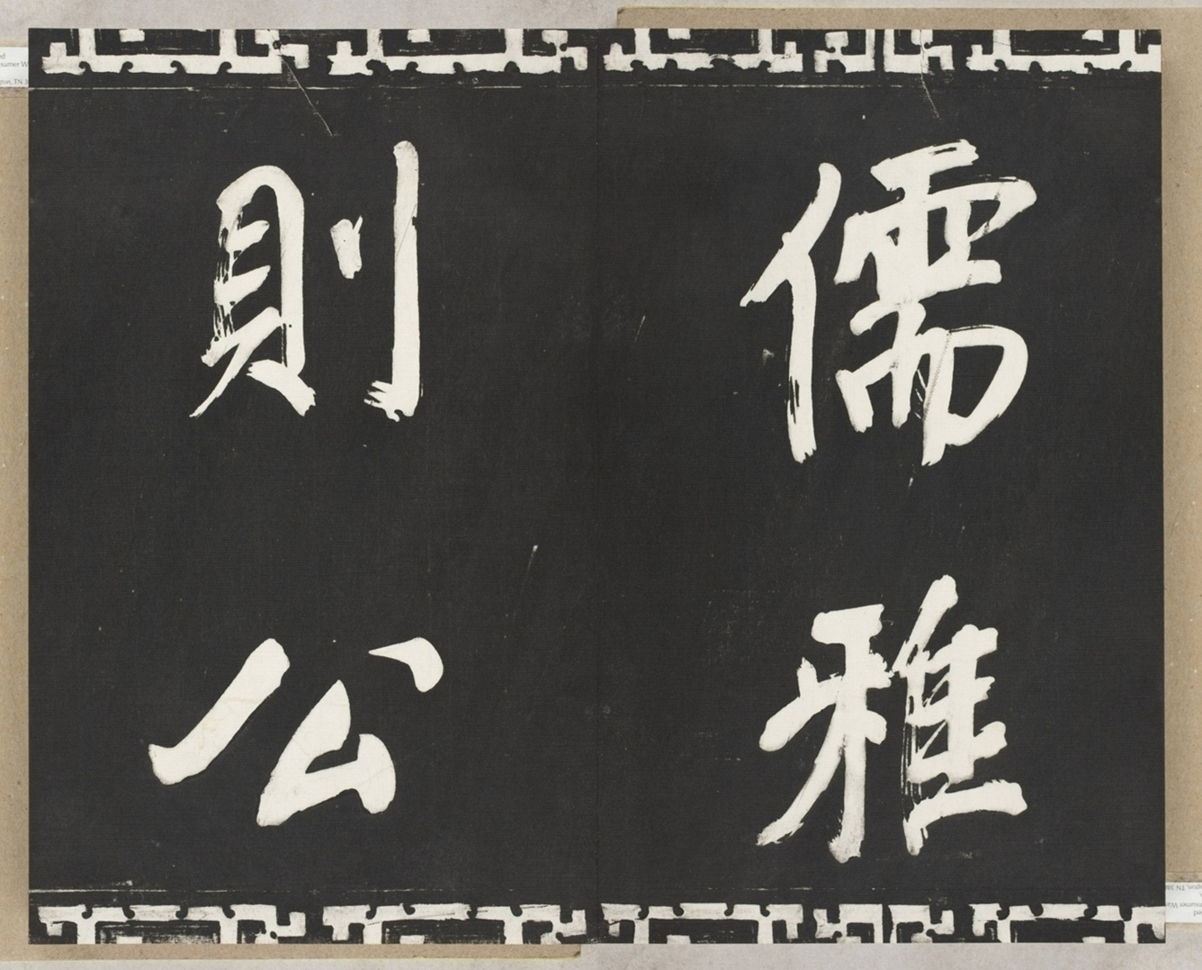 儒雅
則公